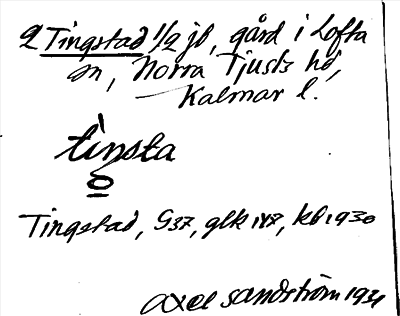 2 Tingstad 1/2 jb, gård i Lofta
sn, Norra Tjusts hd,
Kalmar l.
tìnsta
o
Tingstad, G37, glk 187, kb 1930
Axel Sandström 1934